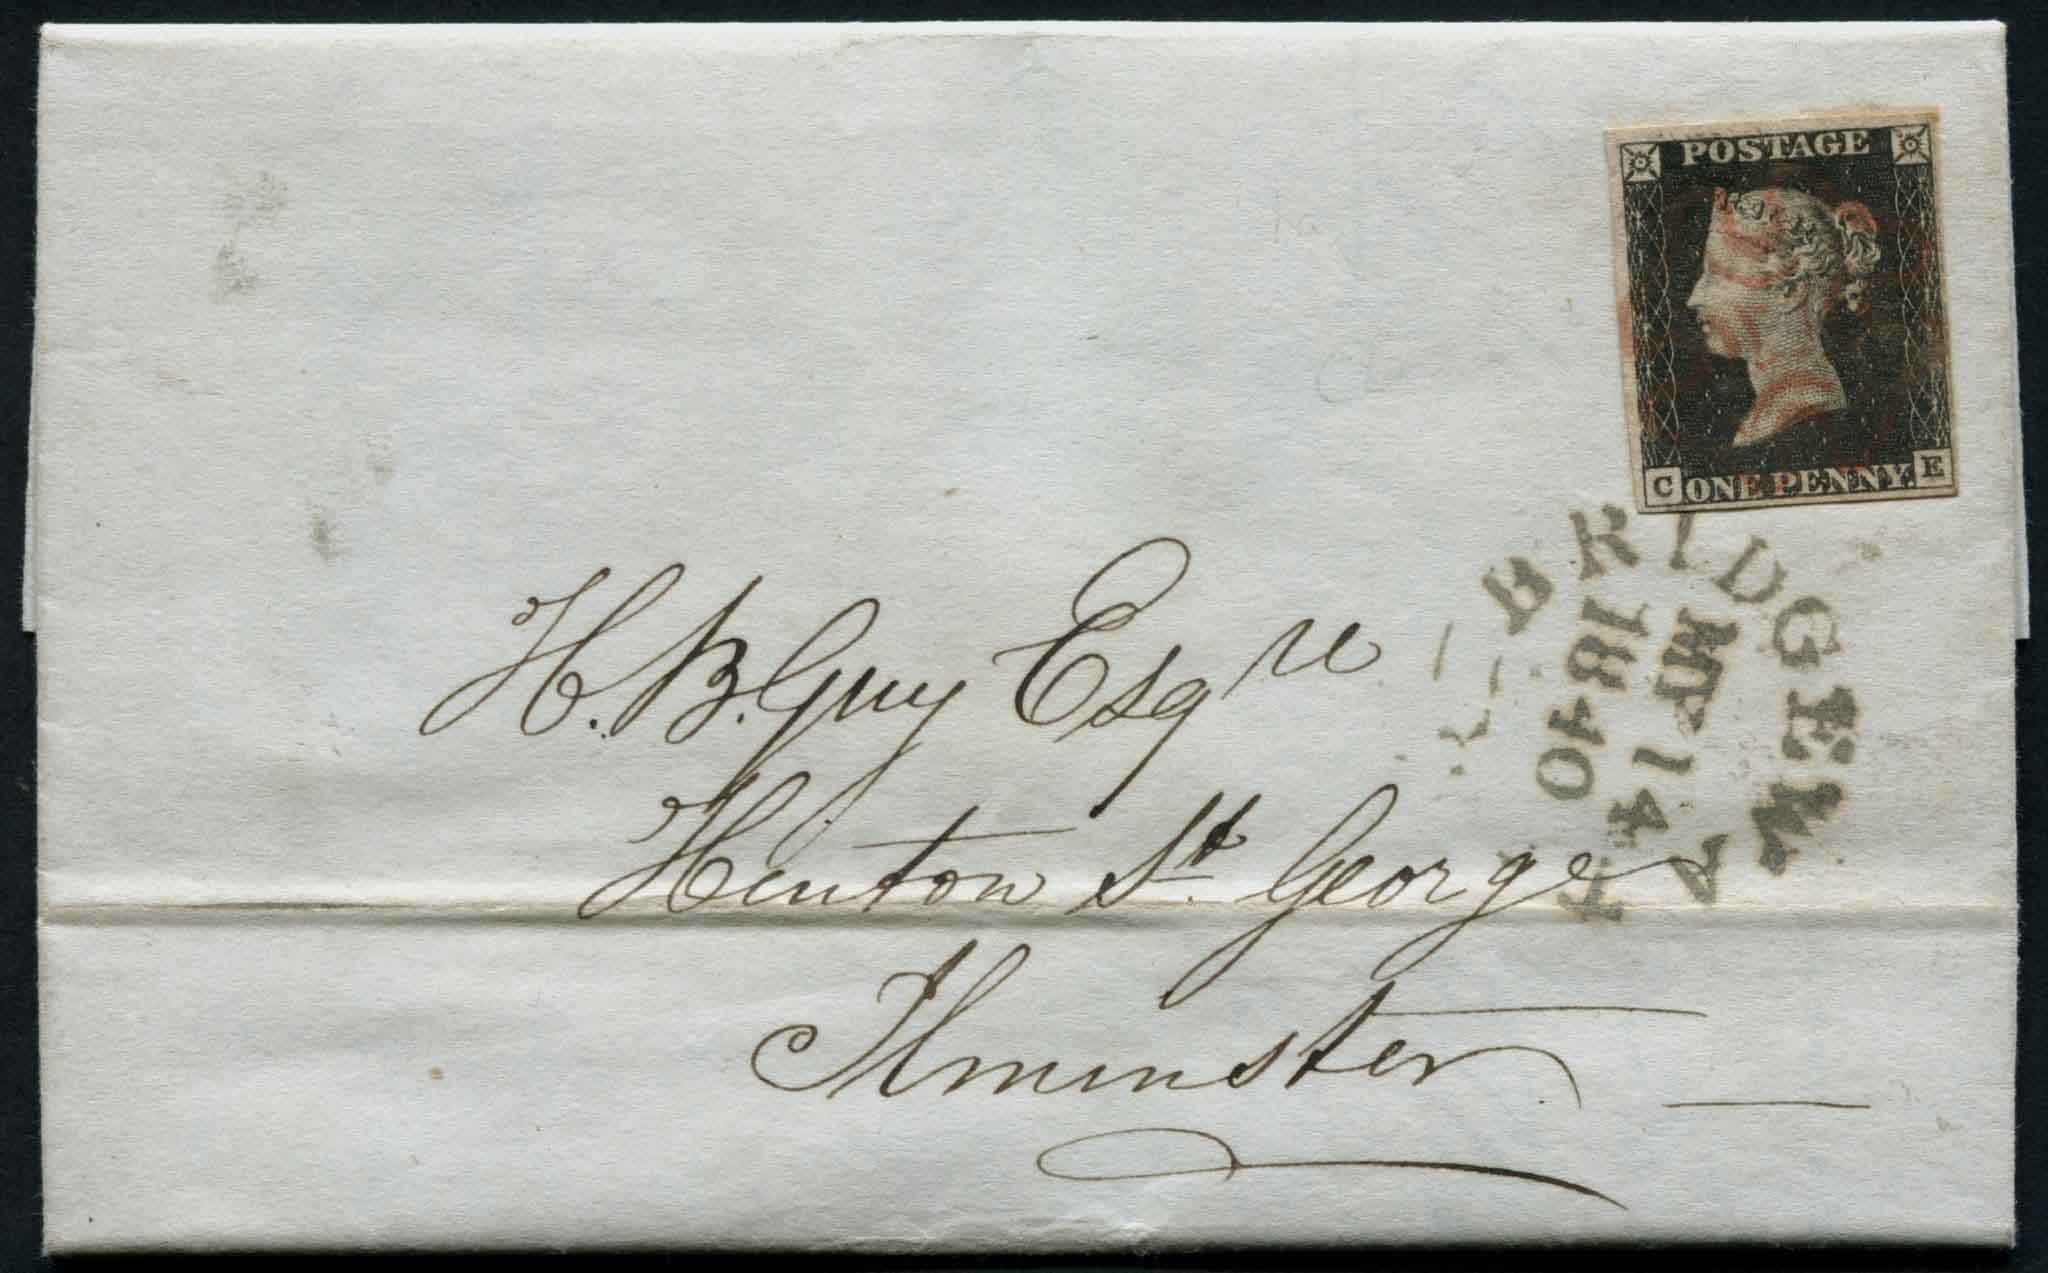 POSTAGE
C ONE PENNY. E
BRIDGEWATER
MY 14
1840
H. B. Guy Esqre
Hinton St. George
Ilminster